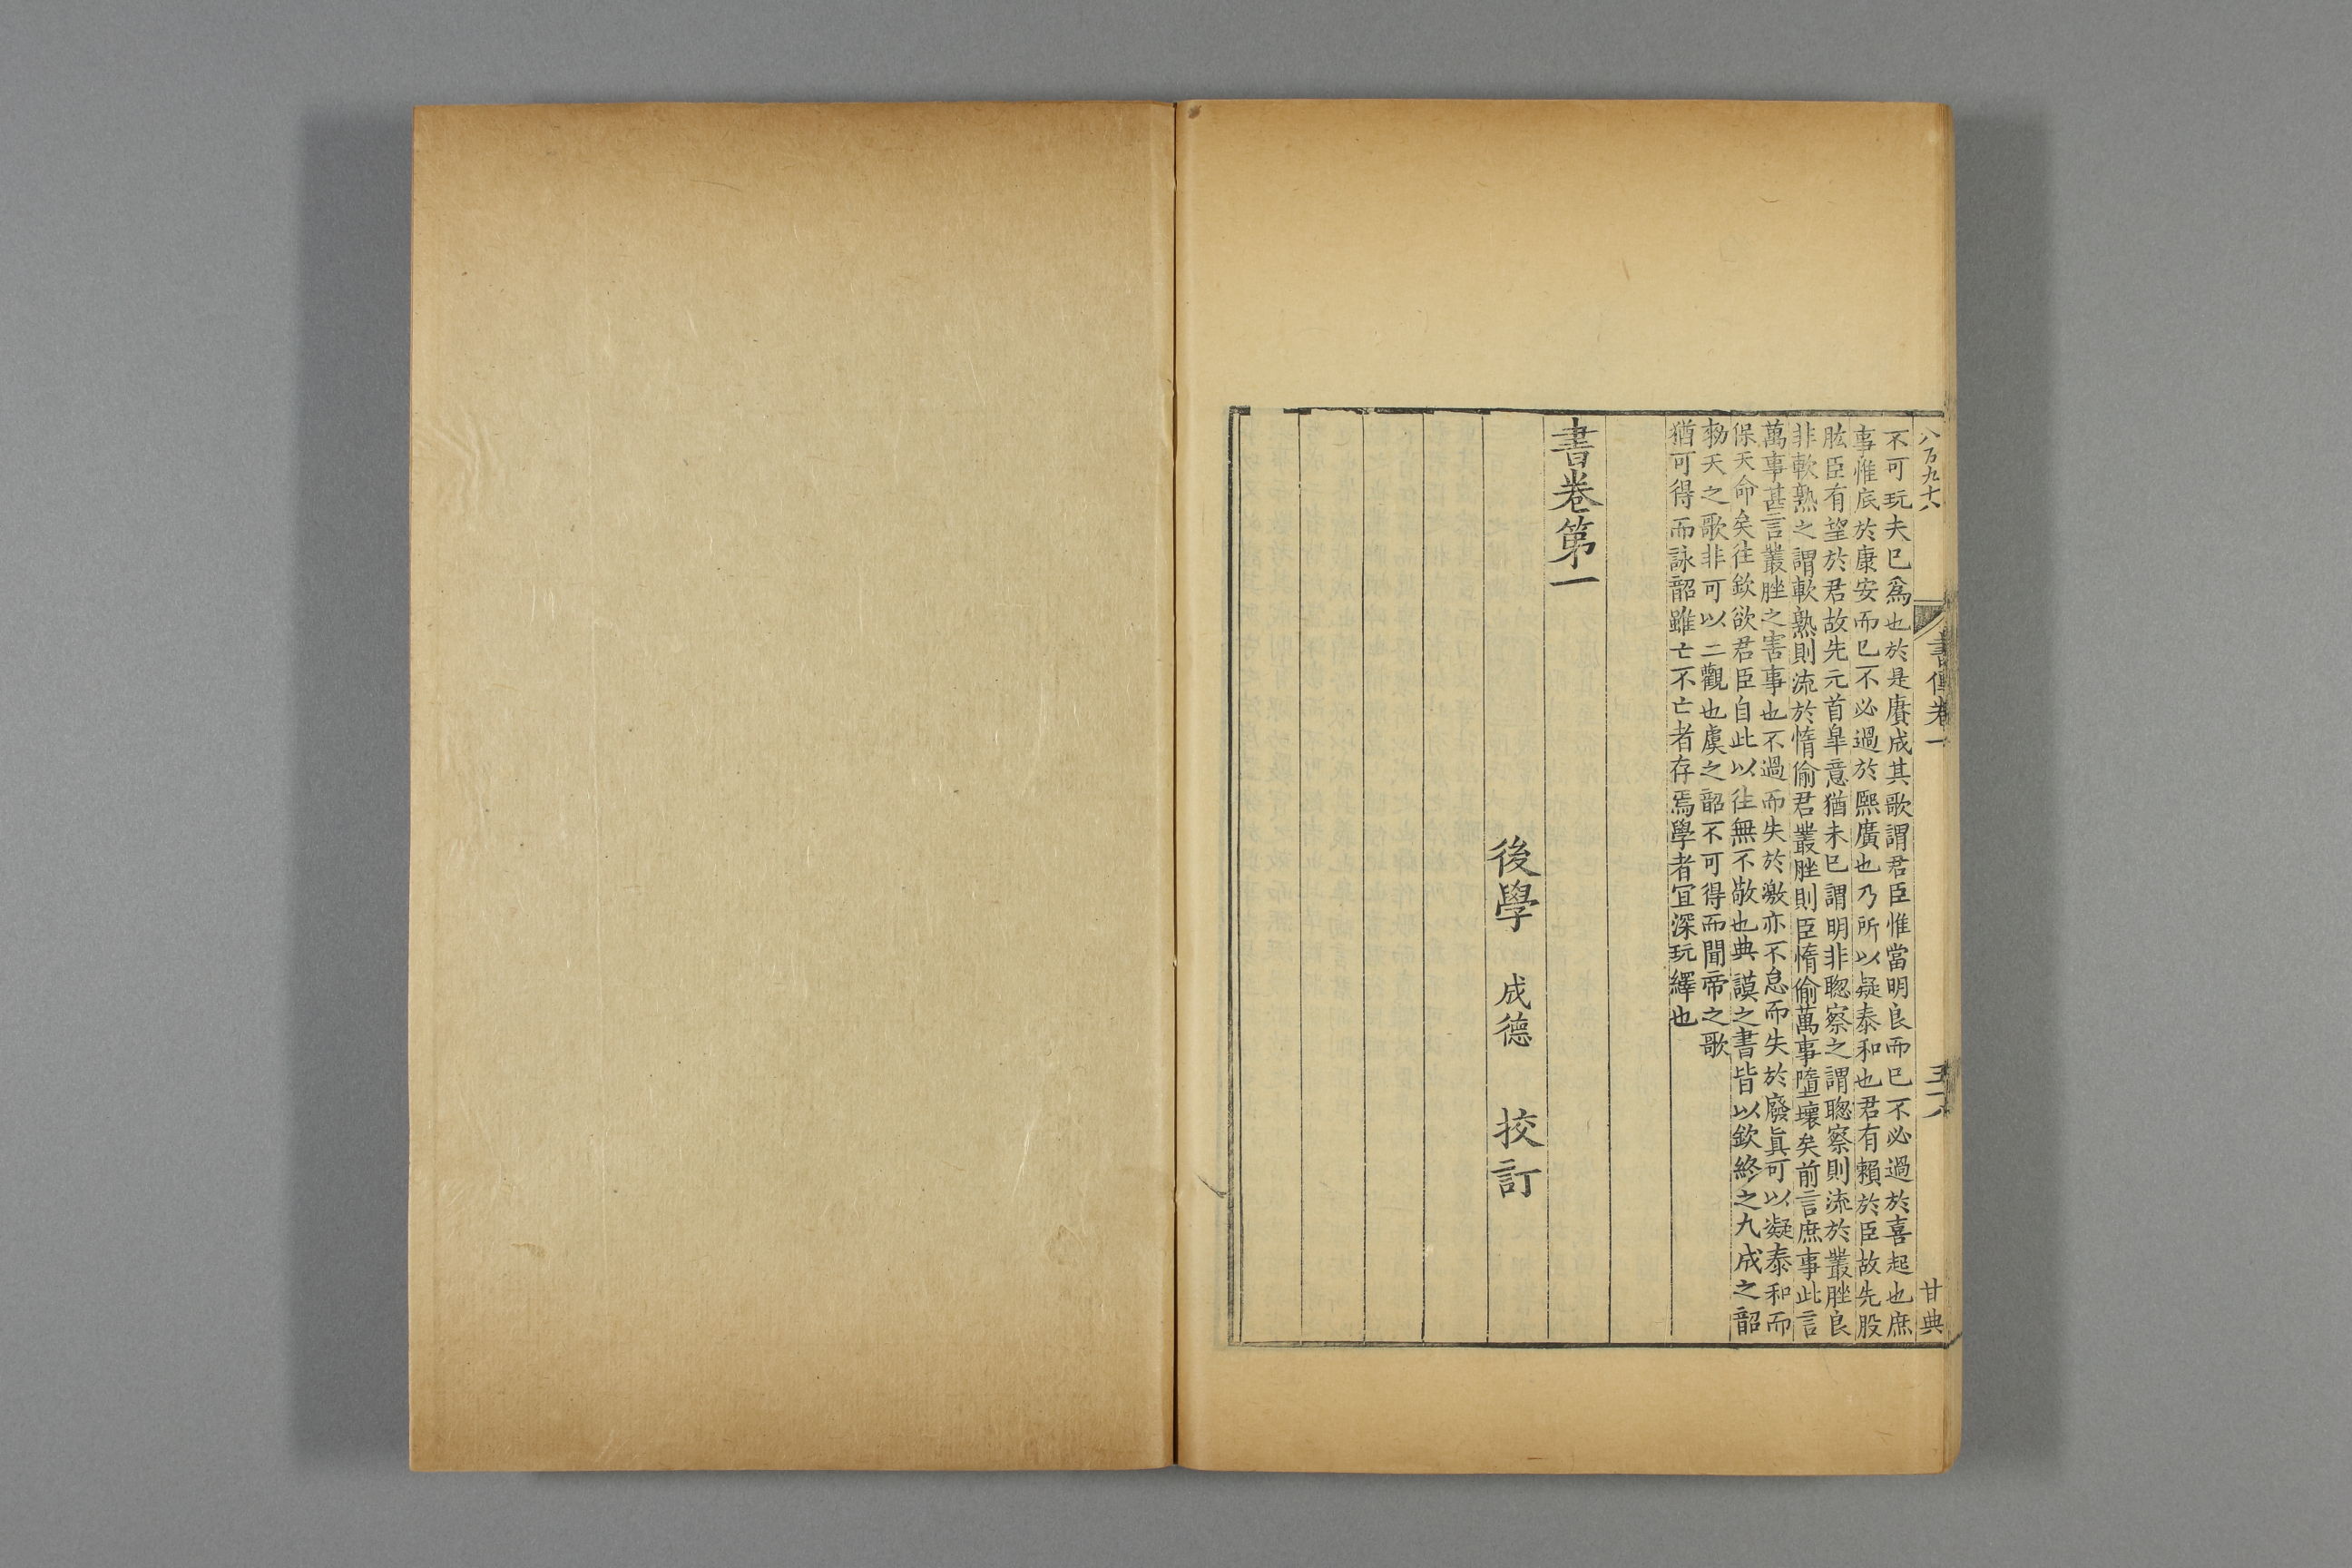 八百九十六
書傳卷一
甘典
不可玩夫已爲也於是賡成其歌謂君臣惟當明良而已不必過於喜起也庶
事惟底於康安而已不必過於熙廣也乃所以凝泰和也君有賴於臣故先股
肱臣有望於君故先元首皐意猶未已謂明非聦察之謂聦察則流於叢脞良
非軟熟之謂軟熟則流於惰偷君叢脞則臣惰偷萬事隳壞矣前言庶事此言
萬事甚言叢脞之害事也不過而失於激亦不怠而失於廢眞可以凝泰和而
保天命矣往欽欲君臣自此以往無不敬也典謨之書皆以欽終之九成之韶
勑天之歌非可以二觀也虞之韶不可得而聞帝之歌
猶可得而詠韶雖亡不亡者存焉學者宜深玩繹也
書卷第一
後學 成德 挍訂